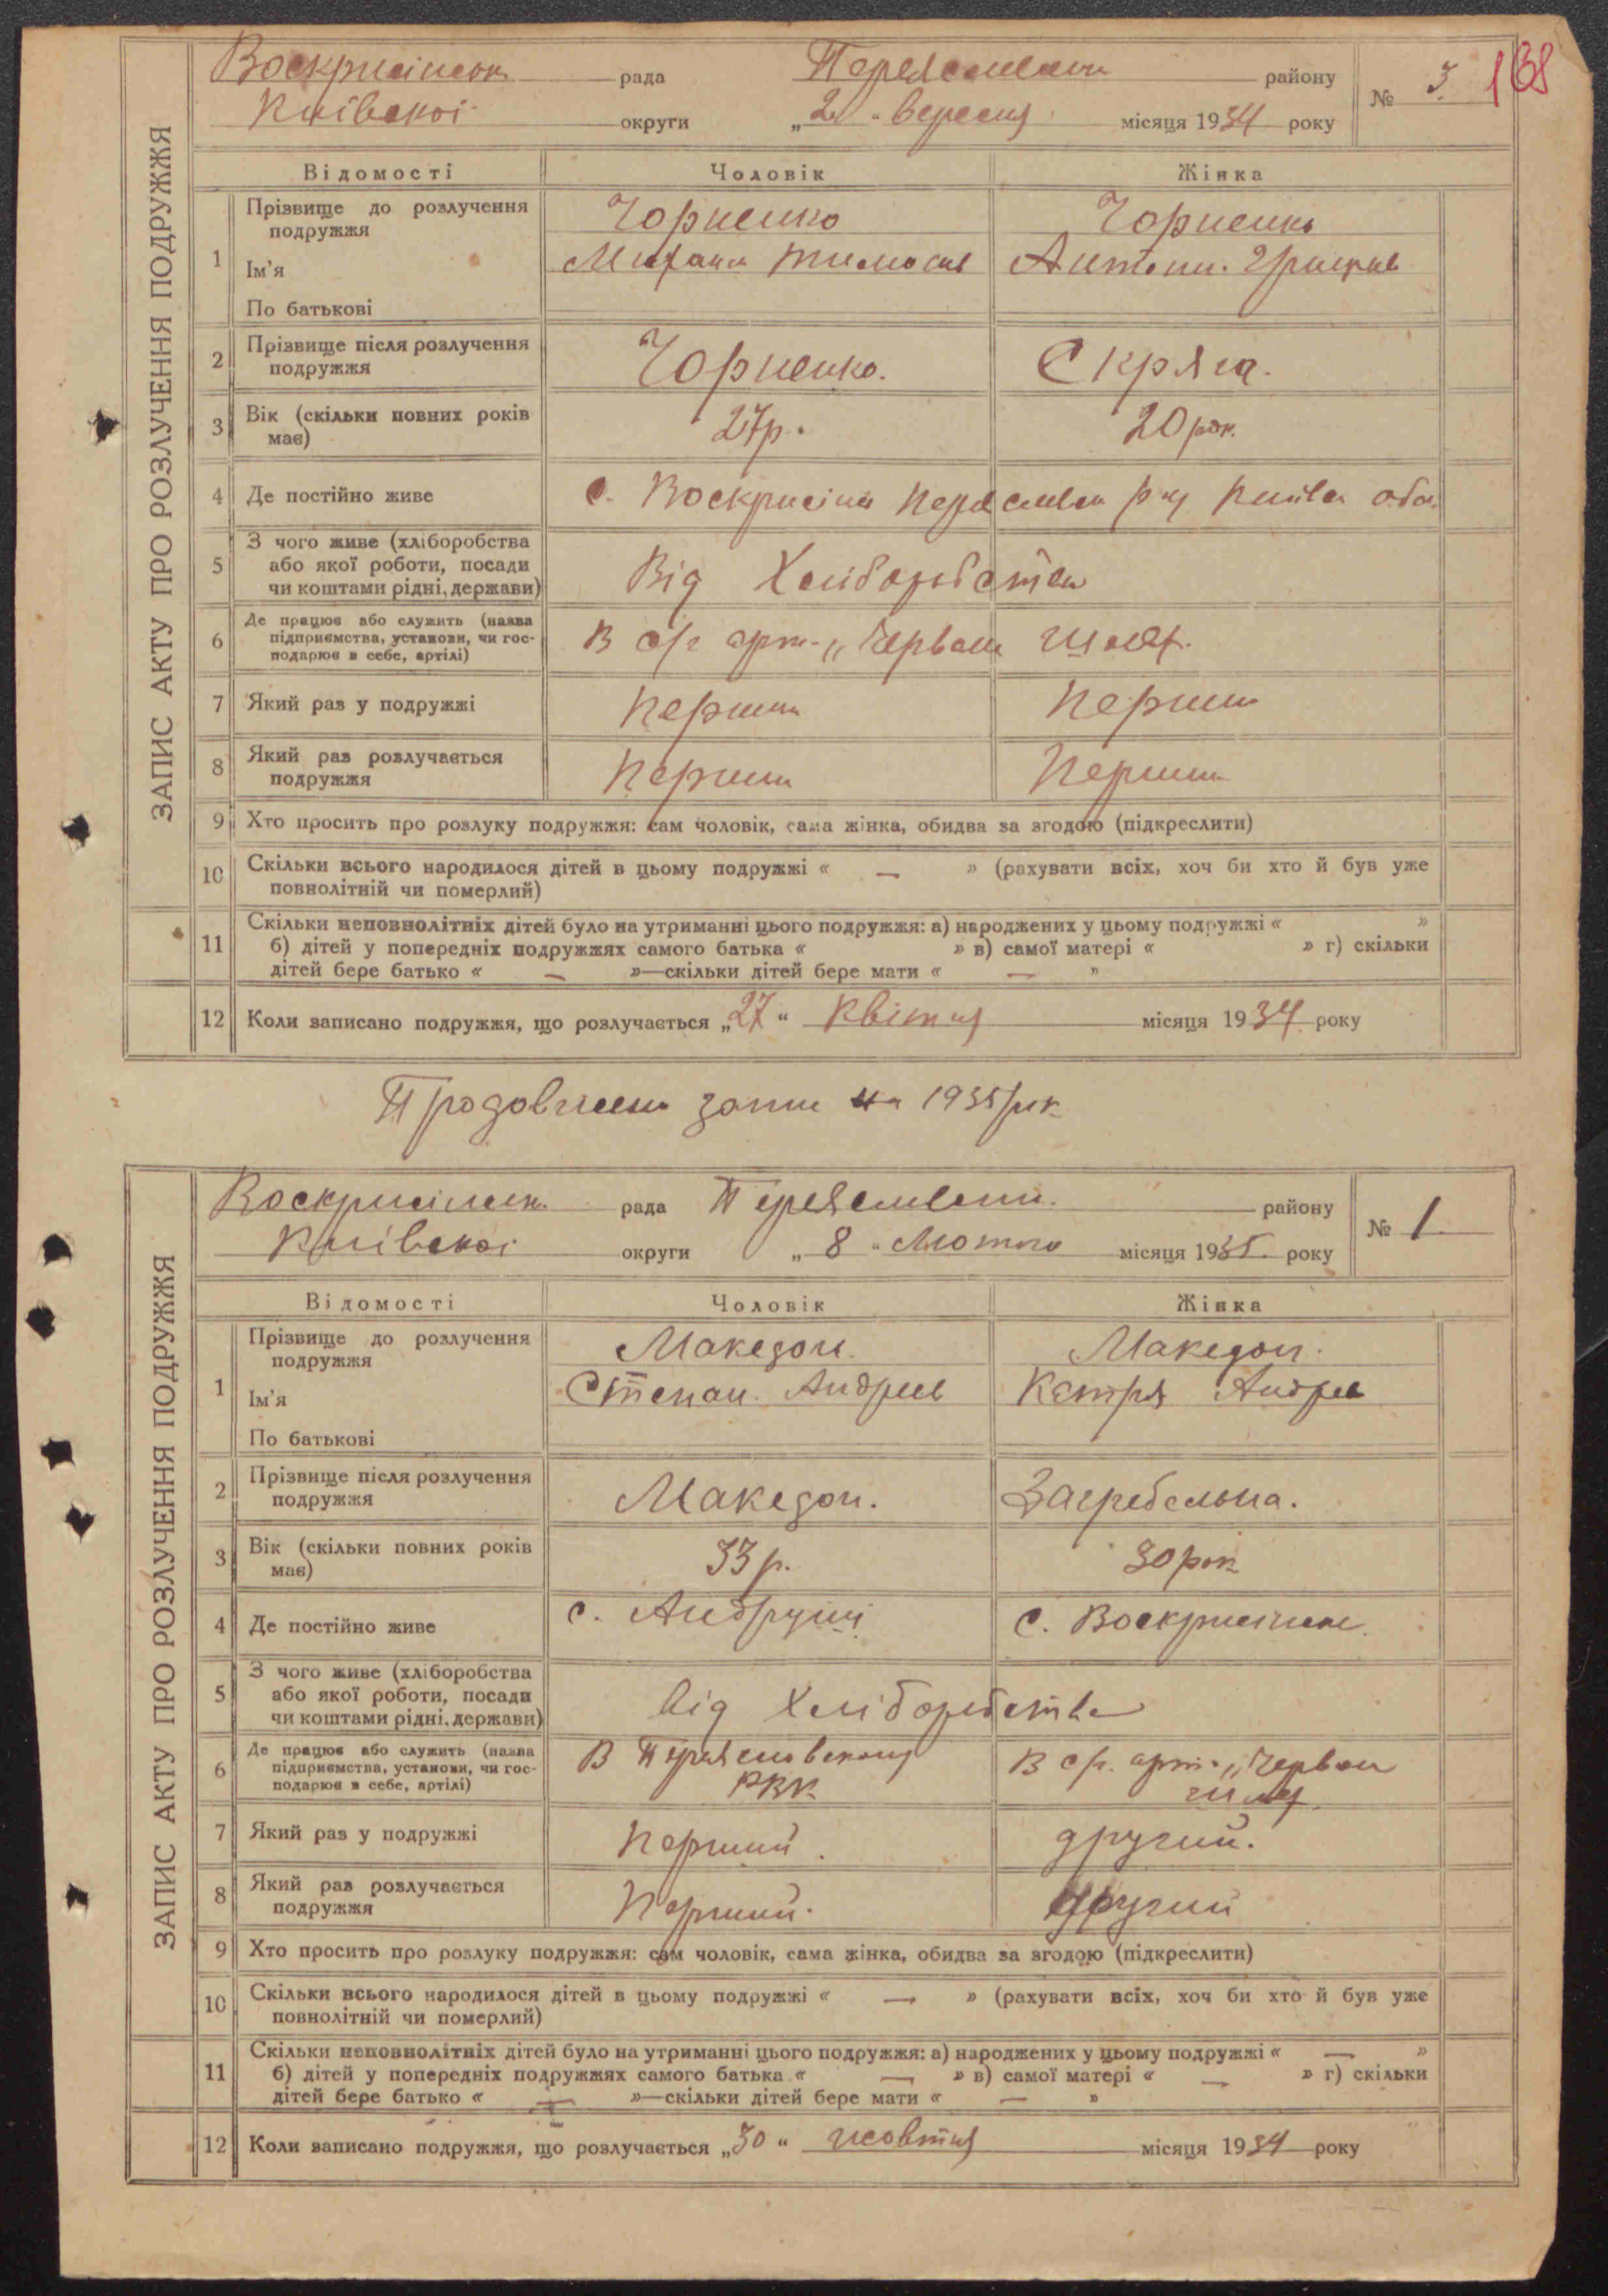 138
Воскрисінськ рада Переяславськ району № 3
Київської округи „2" вересня місяця 1934 року
ЗАПИС АКТУ ПРО РОЗЛУЧЕННЯ ПОДРУЖЖЯ
Відомості Чоловік Жінка
1 Прізвище до розлучення подружжя Чорненко Чорненко
Ім'я Тимофів Антонин. Григорів
По батькові
2 Прізвище після розлучення подружжя Чорненко. Скряга.
3 Вік (скільки повних років має) 27р. 20 рок.
4 Де постійно живе с. Воскрисінка р-ну обл.
5 З чого живе (хліборобства або якої роботи, посади чи коштами рідні, держави) Від Хліборобства
6 Де працює або служить (назва підприємства, установи, чи господарює в себе, артілі) В с/г арт. „Червон шлях.
7 Який раз у подружжі Перший Перший
8 Який раз розлучається подружжя Перший Перший
9 Хто просить про розлуку подружжя: сам чоловік, сама жінка, обидва за згодою (підкреслити)
10 Скільки всього народилося дітей в цьому подружжі « — » (рахувати всіх, хоч би хто й був уже
повнолітній чи померлий)
11 Скільки неповнолітніх дітей було на утриманні цього подружжя: а) народжених у цьому подружжі « »
б) дітей у попередніх подружжях самого батька « » в) самої матері « » г) скільки
дітей бере батько « — »—скільки дітей бере мати « — »
12 Коли записано подружжя, що розлучається „27" Квітня місяця 1934 року
Продовження запис на 1935 рік
Воскрисінськ. рада Переяславськ. району № 1
Київської округи „8" Лютого місяця 1935 року
ЗАПИС АКТУ ПРО РОЗЛУЧЕННЯ ПОДРУЖЖЯ
Відомості Чоловік Жінка
1 Прізвище до розлучення подружжя Македон. Македон.
Ім'я Степан. Андрієв Кетря Андрів
По батькові
2 Прізвище після розлучення подружжя Македон. Загребельна.
3 Вік (скільки повних років має) 33 р. 30 рок
4 Де постійно живе с. Андруші с. Воскрисінське.
5 З чого живе (хліборобства або якої роботи, посади чи коштами рідні, держави) Від Хліборобства
6 Де працює або служить (назва підприємства, установи, чи господарює в себе, артілі) В Переяславському РВК В с/г. арт. „Червон шлях
7 Який раз у подружжі Перший. другий.
8 Який раз розлучається подружжя Перший. другий
9 Хто просить про розлуку подружжя: сам чоловік, сама жінка, обидва за згодою (підкреслити)
10 Скільки всього народилося дітей в цьому подружжі « — » (рахувати всіх, хоч би хто й був уже
повнолітній чи померлий)
11 Скільки неповнолітніх дітей було на утриманні цього подружжя: а) народжених у цьому подружжі « — »
б) дітей у попередніх подружжях самого батька « — » в) самої матері « — » г) скільки
дітей бере батько « — »—скільки дітей бере мати « — »
12 Коли записано подружжя, що розлучається „30" жовтня місяця 1934 року